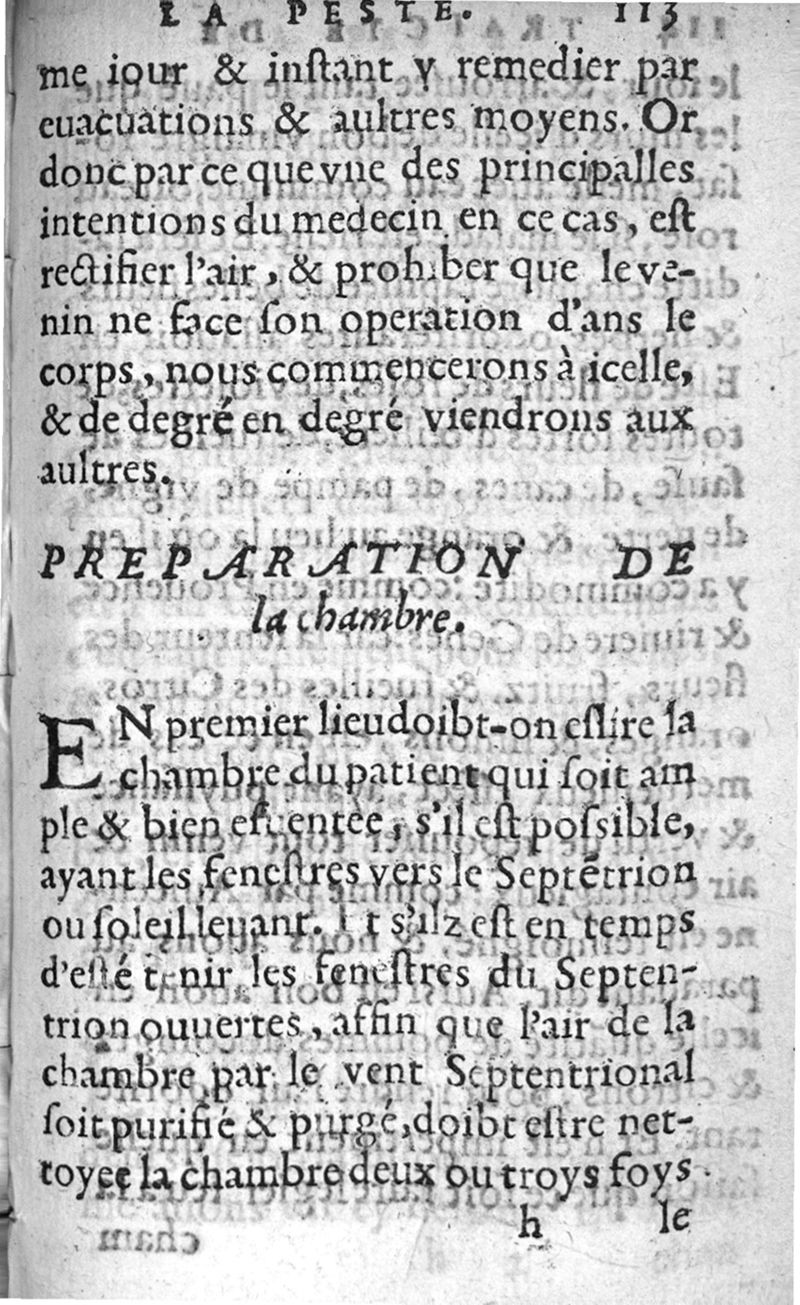 LA PESTE. 113
me iour & inſtant y remedier par
euacuations & aultres moyens. Or
donc par ce que vne des principalles
intentions du medecin en ce cas, eſt
rectifier l'air, & prohiber que le ve-
nin ne face ſon operation d'ans le
corps, nous commencerons à icelle,
& de degré en degré viendrons aux
aultres.
PREPARATION DE
la chambre.
EN premier lieu doibt-on eſlire la
chambre du patient qui ſoit am
ple & bien eſuentee, s'il eſt poſsible,
ayant les feneſtres vers le Septẽtrion
ou ſoleil leuant. Et s'ilz eſt en temps
d'eſté tenir les feneſtres du Septen-
trion ouuertes, affin que l'air de la
chambre par le vent Septentrional
ſoit purifié & purgé, doibt eſtre net-
toyee la chambre deux ou troys foys
h le